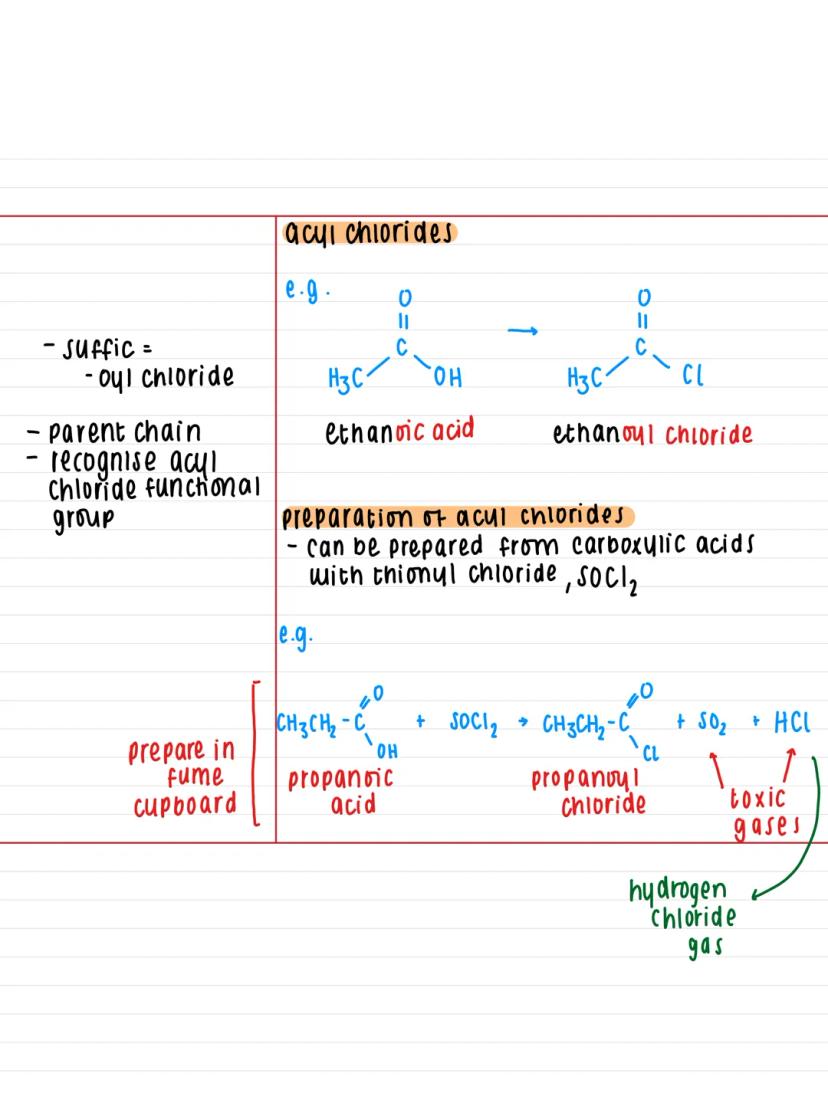 acyl chlorides
e.g.
O
||
C
H3C
OH
→
O
||
C
H3C
Cl
ethanoic acid
ethanoyl chloride
- suffic =
- oyl chloride
- parent chain
- recognise acyl
chloride functional
group
preparation of acyl chlorides
- can be prepared from carboxylic acids
with thionyl chloride, SOCl₂
e.g.
O
O
CH₃CH₂-C + SOCl₂ → CH₃CH₂-C + SO₂ + HCl
OH
Cl
propanoic
acid
propanoyl
chloride
toxic
gases
prepare in
fume
cupboard
hydrogen
chloride
gas